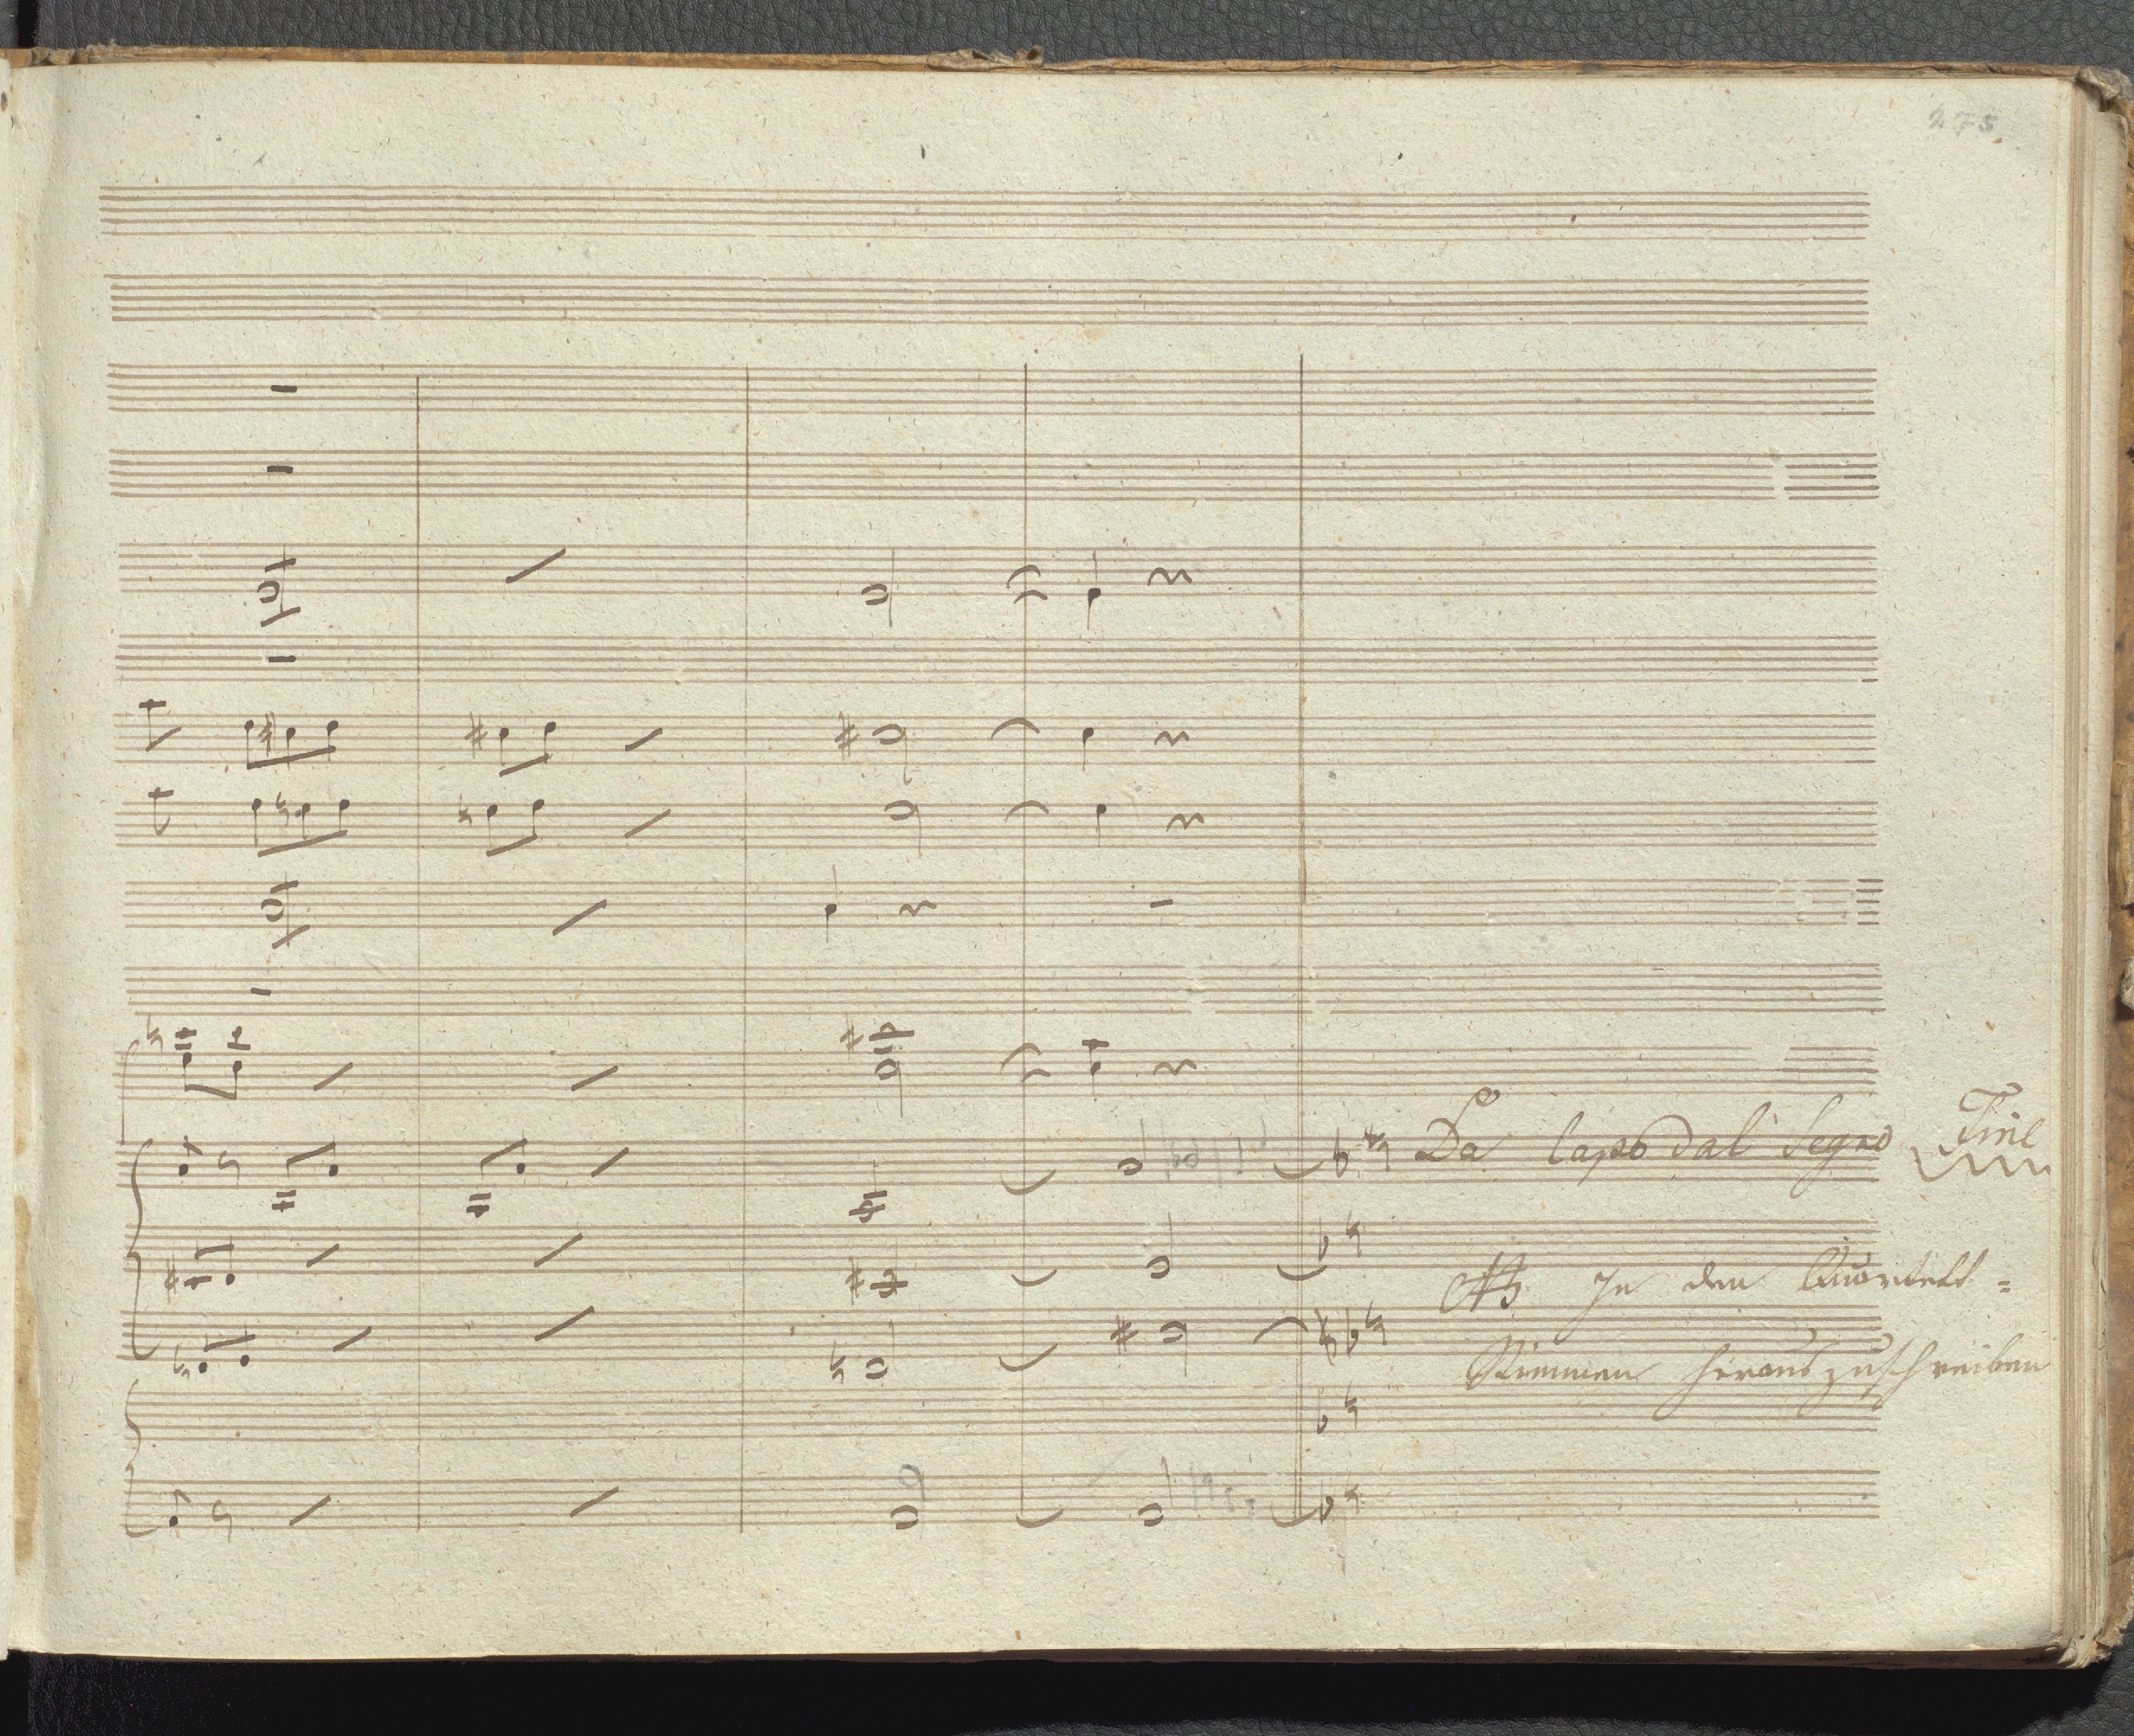 275.
Da Capo dal Segno Fine
NB. In den Quartett=
Stimmen herauszuschreiben